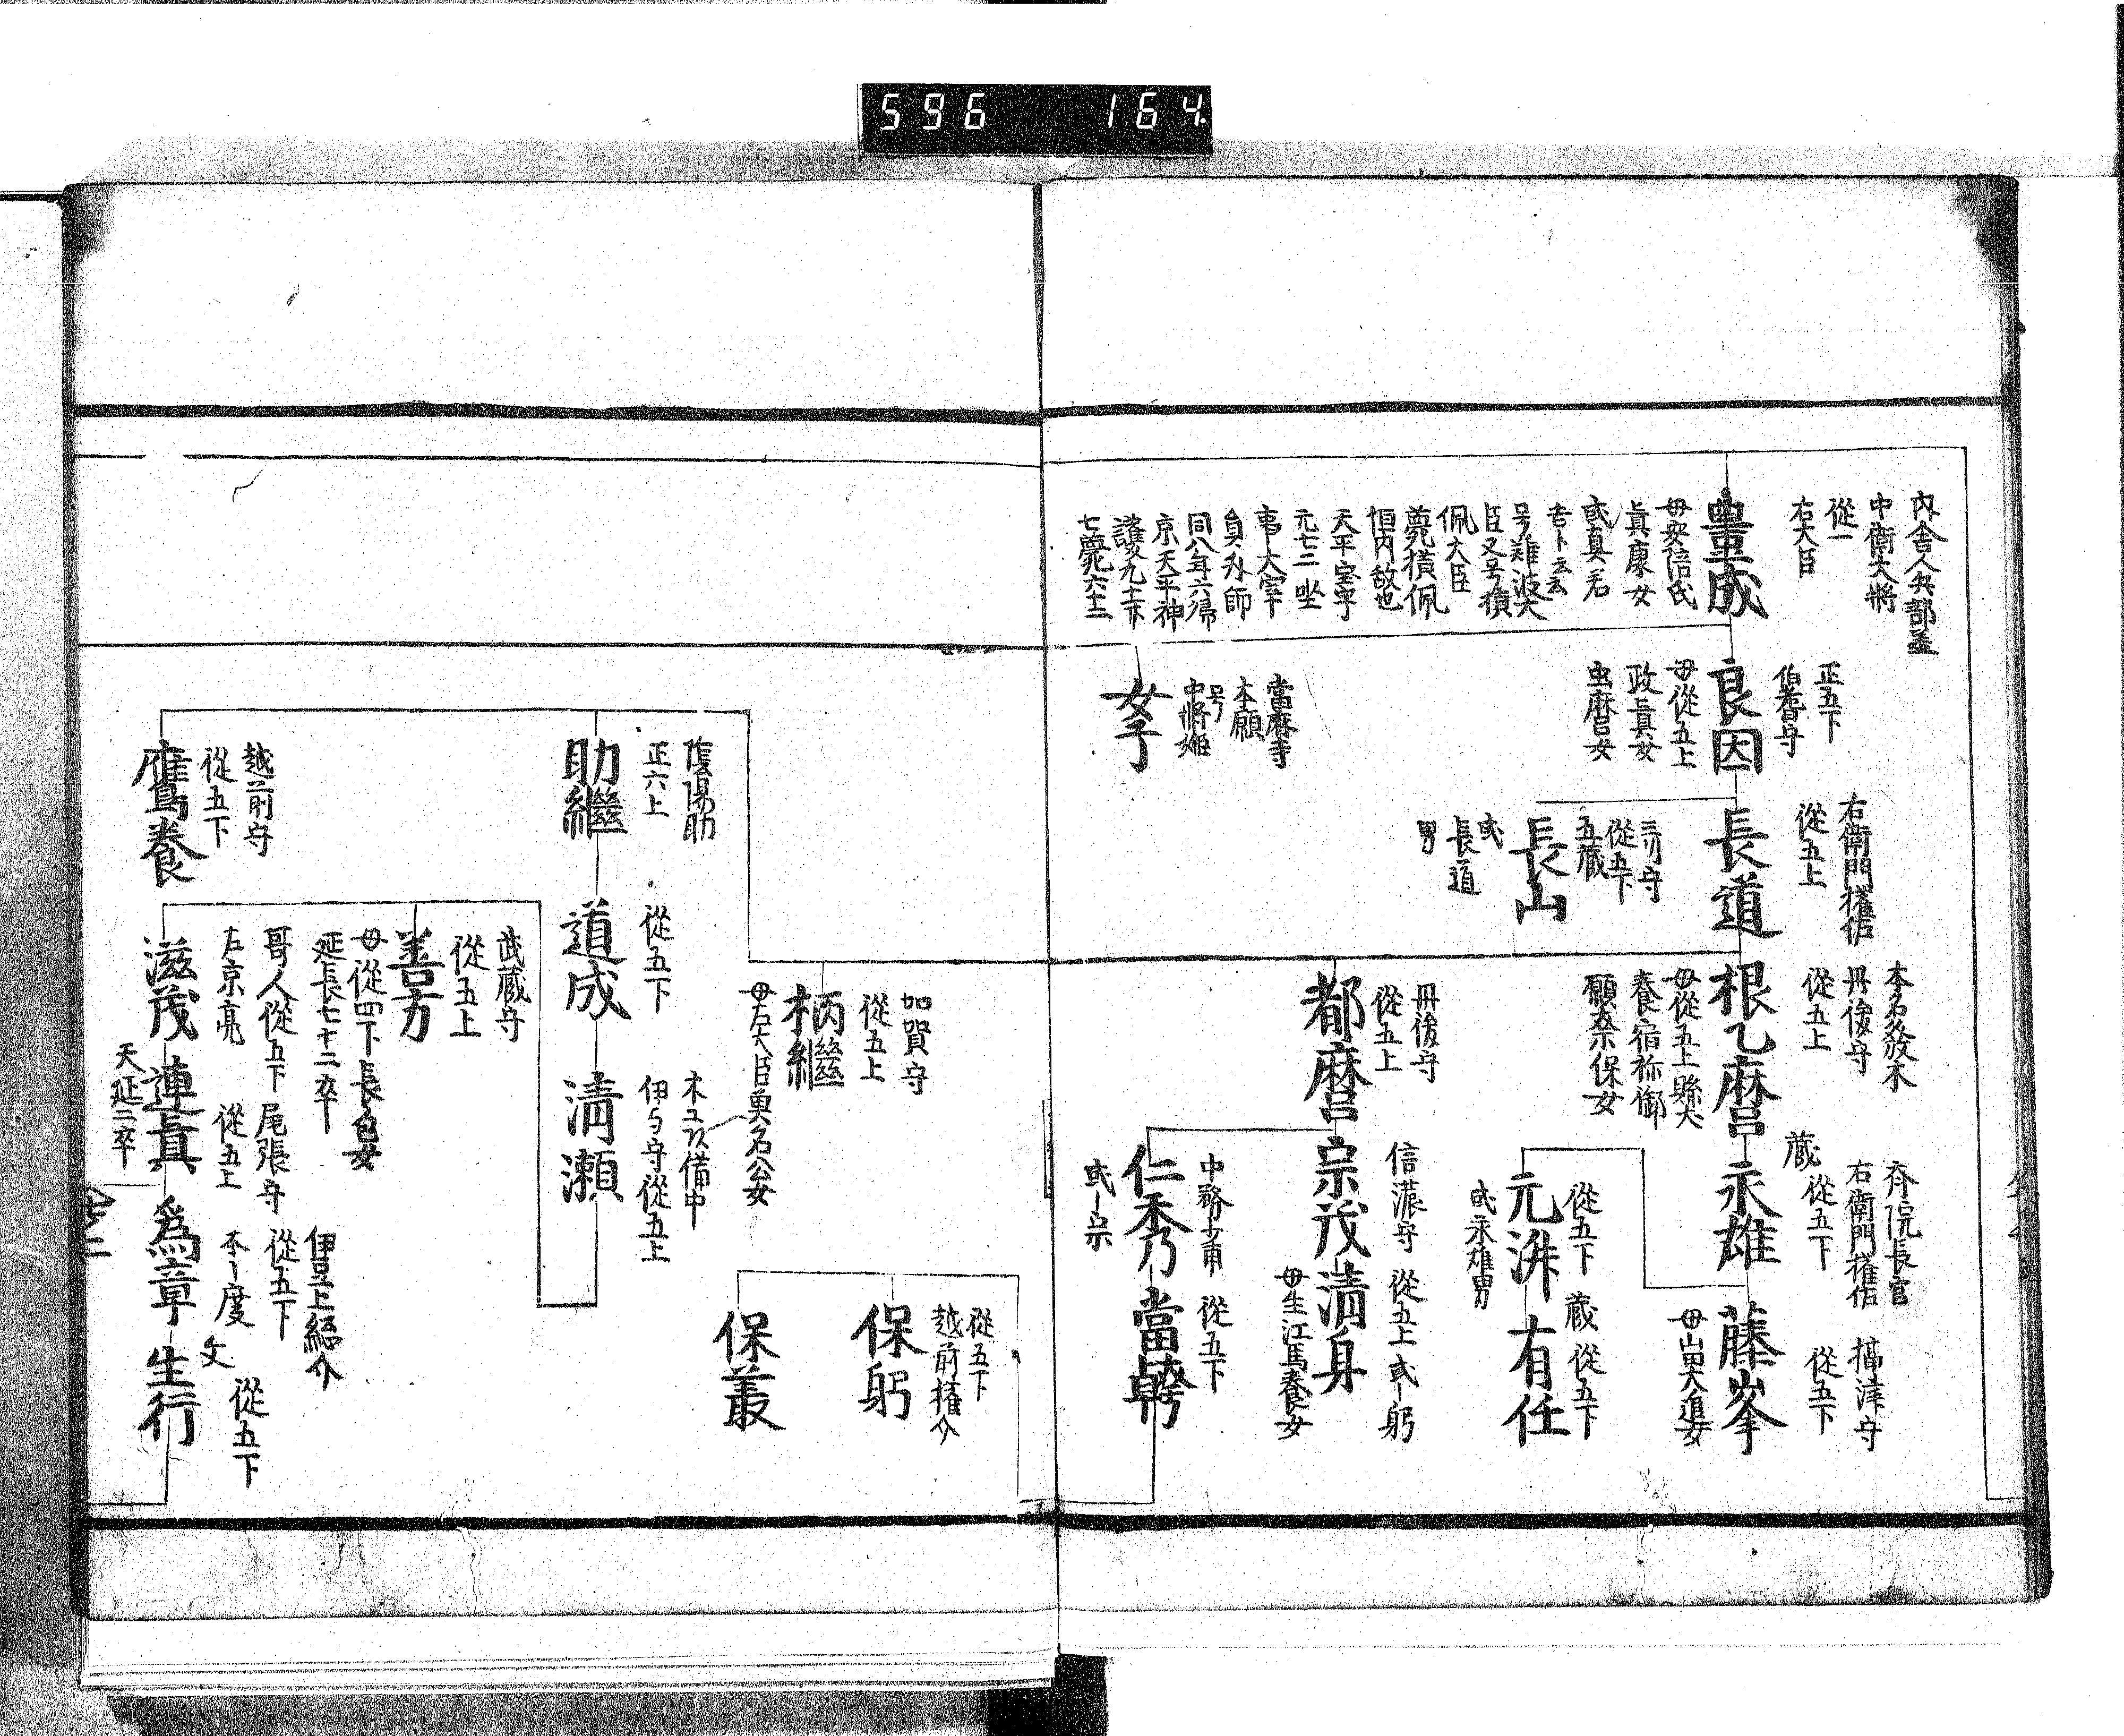 596 164
内舎人兵部丞
中衛大將
從一
右大臣
豊成
母安陪氏
眞康女
或真若
吉ト云云
号難波大
臣又号横
佩大臣
薨横佩
垣内故也
天平宝字
元七二坐
事ー大宰
員外師
同八年六帰
京天平神
護元十一下
七薨六十二
正五下
伯耆守
良因
母從五上
政眞女
虫麿女
當麻寺
本願
号
中將姫
女子
右衛門權佐
從五上
長道
三川守
從五下
五蔵
長山
或
長道
男
本名發木
丹後守
從五上
根乙麿
母從五上縣犬
養宿祢御
願奈保女
丹後守
從五上
都麿
齐院長官
右衛門權佐
蔵從五下
永雄
從五下
元洴
或永雄男
信濃守
宗茂
中務少甫
仁秀
或ー宗
攝津守
從五下
藤峯
母山田大進女
蔵從五下
有任
從五上或ー躬
清身
母生江馬養女
從五下
當幹
加賀守
從五上
柄繼
母左大臣奥名公女
從五下
越前權介
保躬
保叢
陰陽助
正六上
助繼
從五下
道成
木工頭備中
伊与守從五上
清瀬
越前守
從五下
鷹養
武蔵守
從五上
善方
母從四下長自女
延長七十二卒
哥人從五下
左京亮
滋茂
尾張守
從五上
連眞
天延二卒
伊豆上総介
從五下
本ー度
爲章
文
從五下
生行